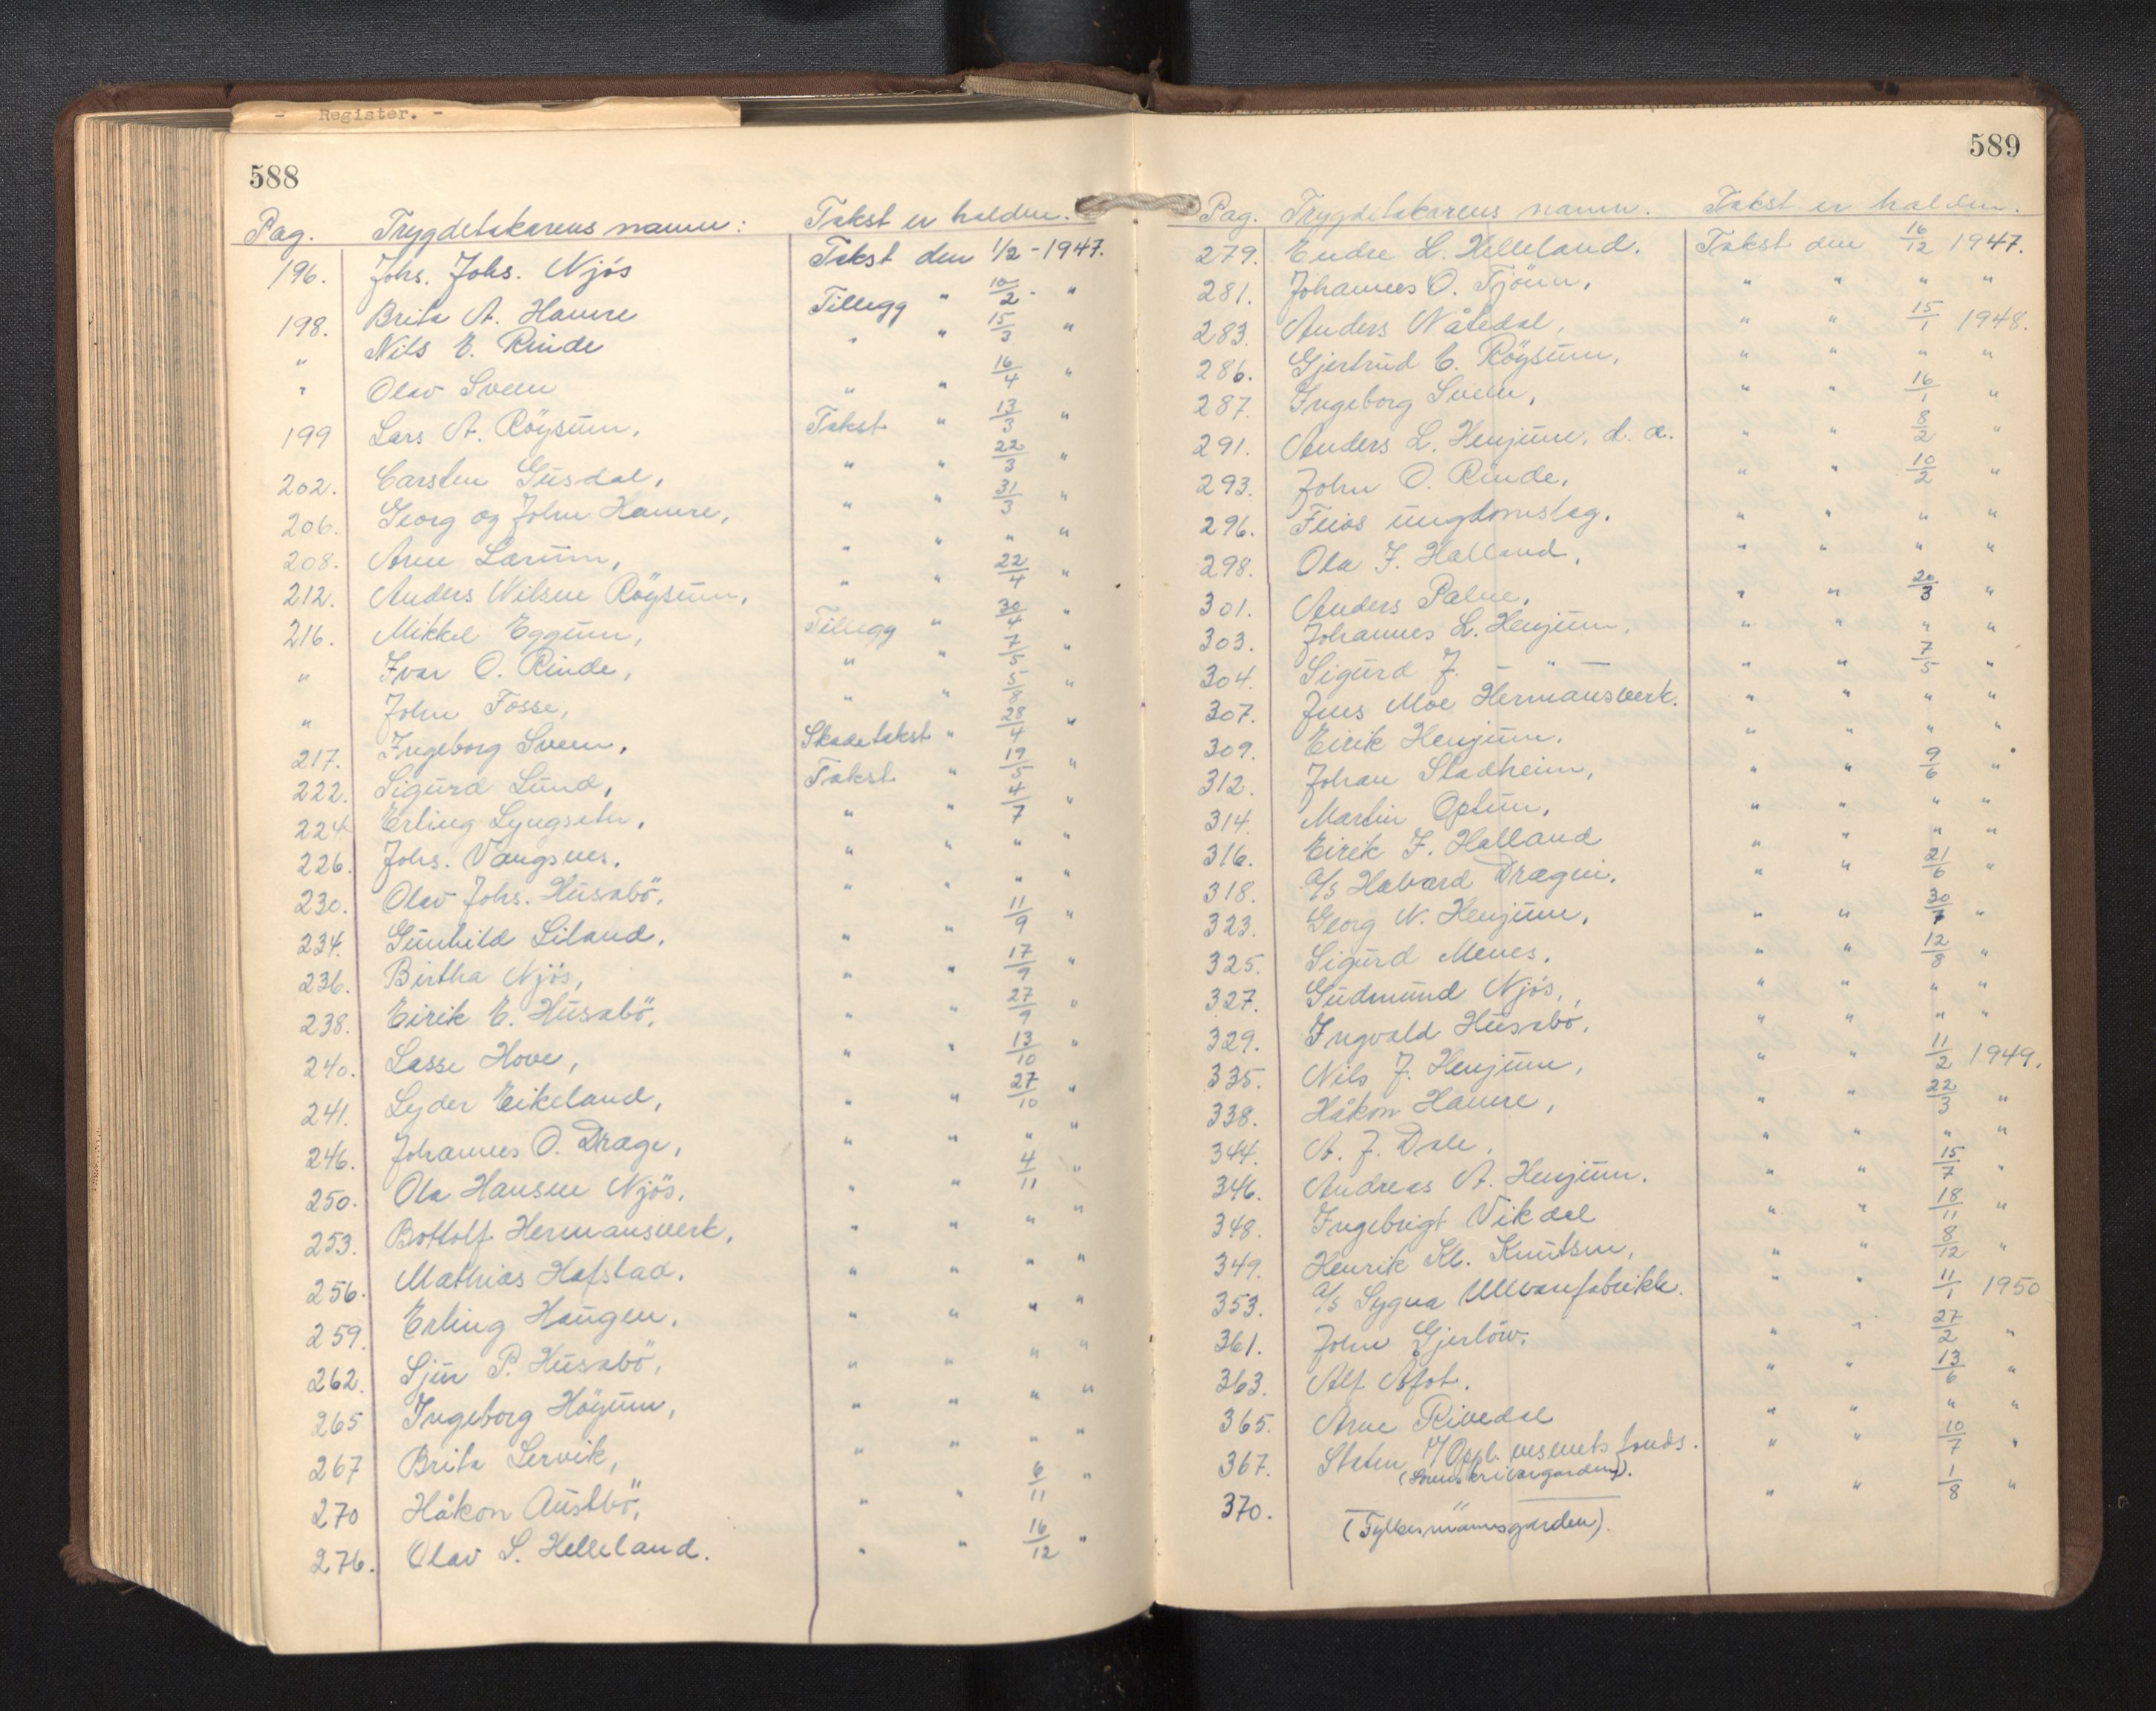 - Register. -
588
Pag. Trygdetakarens namn: Takst er halden.
196. Johs. Johs. Njøs Takst den 1/2 - 1947.
198. Brita A. Hamre Tillegg " 10/2 - "
" Nils E. Rinde " " 15/3 "
" Olav Sveen " " 16/4 "
199 Lars A. Röysum, Takst " 13/3 "
202. Carsten Gusdal, " " 22/3 "
206. Georg og John Hamre, " " 31/3 "
208. Arne Larum, " " " "
212. Anders Nilsen Röysum, " " 22/4 "
216. Mikkel Eggum, Tillegg " 30/4 "
" Ivar O. Rinde, " " 7/5 "
" John Fosse, " " 5/8 "
217. Ingeborg Sveen, Skadetakst " 28/4 "
222. Sigurd Lund, Takst " 19/5 "
224 Erling Lyngseth, " " 4/7 "
226. Johs. Vangsnes, " " " "
230. Olav Johs. Husabö, " " " "
234. Gunhild Liland, " " 11/9 "
236. Birtha Njös, " " 17/9 "
238. Eirik E. Husabö, " " 27/9 "
240. Lasse Hove, " " 13/10 "
241. Lyder Eikeland, " " 27/10 "
246. Johannes O. Drage, " " " "
250. Ola Hansen Njös, " " 4/11 "
253. Bottolf Hermansverk, " " " "
256. Mathias Hafstad, " " " "
259. Erling Haugen, " " " "
262. Sjur P. Husabö, " " " "
265 Ingeborg Höyum, " " " "
267 Brita Lervik, " " " "
270 Håkon Austbö, " " 6/11 "
276. Olav S. Helleland. " " 16/12 "
589
Pag. Trygdetakarens namn. Takst er halden.
279. Endre L. Helleland. Takst den 16/12 1947.
281. Johannes O. Tjönn, " " " "
283. Anders Nåtedal, " " 15/1 1948.
286. Gjertrud E. Röysum, " " " "
287. Ingeborg Sveen, " " 16/1 "
291. Anders L. Henjum, d. e. " " 8/2 "
293. John O. Rinde, " " 10/2 "
296. Feios ungdomslag. " " " "
298. Ola J. Halland, " " " "
301. Anders Palne, " " 20/3 "
303. Johannes L. Henjum, " " " "
304. Sigurd J. - " - " " 7/5 "
307. Jens Moe Hermansverk. " " " "
309. Eirik Henjum. " " " "
312. Johan Stadheim, " " 9/6 "
314. Martin Optun, " " " "
316. Eirik J. Halland " " " "
318. a/s Havard Drægni, " " 21/6 "
323. Georg N. Henjum, " " 30/7 "
325. Sigurd Menes, " " 12/8 "
327. Gudmund Njös, " " " "
329. Ingvald Husabö, " " " "
335. Nils J. Henjum, " " 11/2 1949.
338. Håkon Hamre, " " 22/3 "
344. A. J. Dale, " " " "
346. Andreas A. Henjum. " " 15/7 "
348. Ingebrigt Vikdal " " 18/11 "
349. Henrik Kl. Knutsen, " " 8/12 "
353. a/s Sygna Ullvarefabrikk. " " 11/1 1950
361. John Gjerlöw. " " 27/2 "
363. Alf Afot. " " 13/6 "
365. Arne Rivedal " " " "
367. Staten v/ Oppl. vesenets fonds. " " 10/7 "
(Sorenskrivargarden).
370. " " " 1/8 "
(Fylkesmannsgarden).